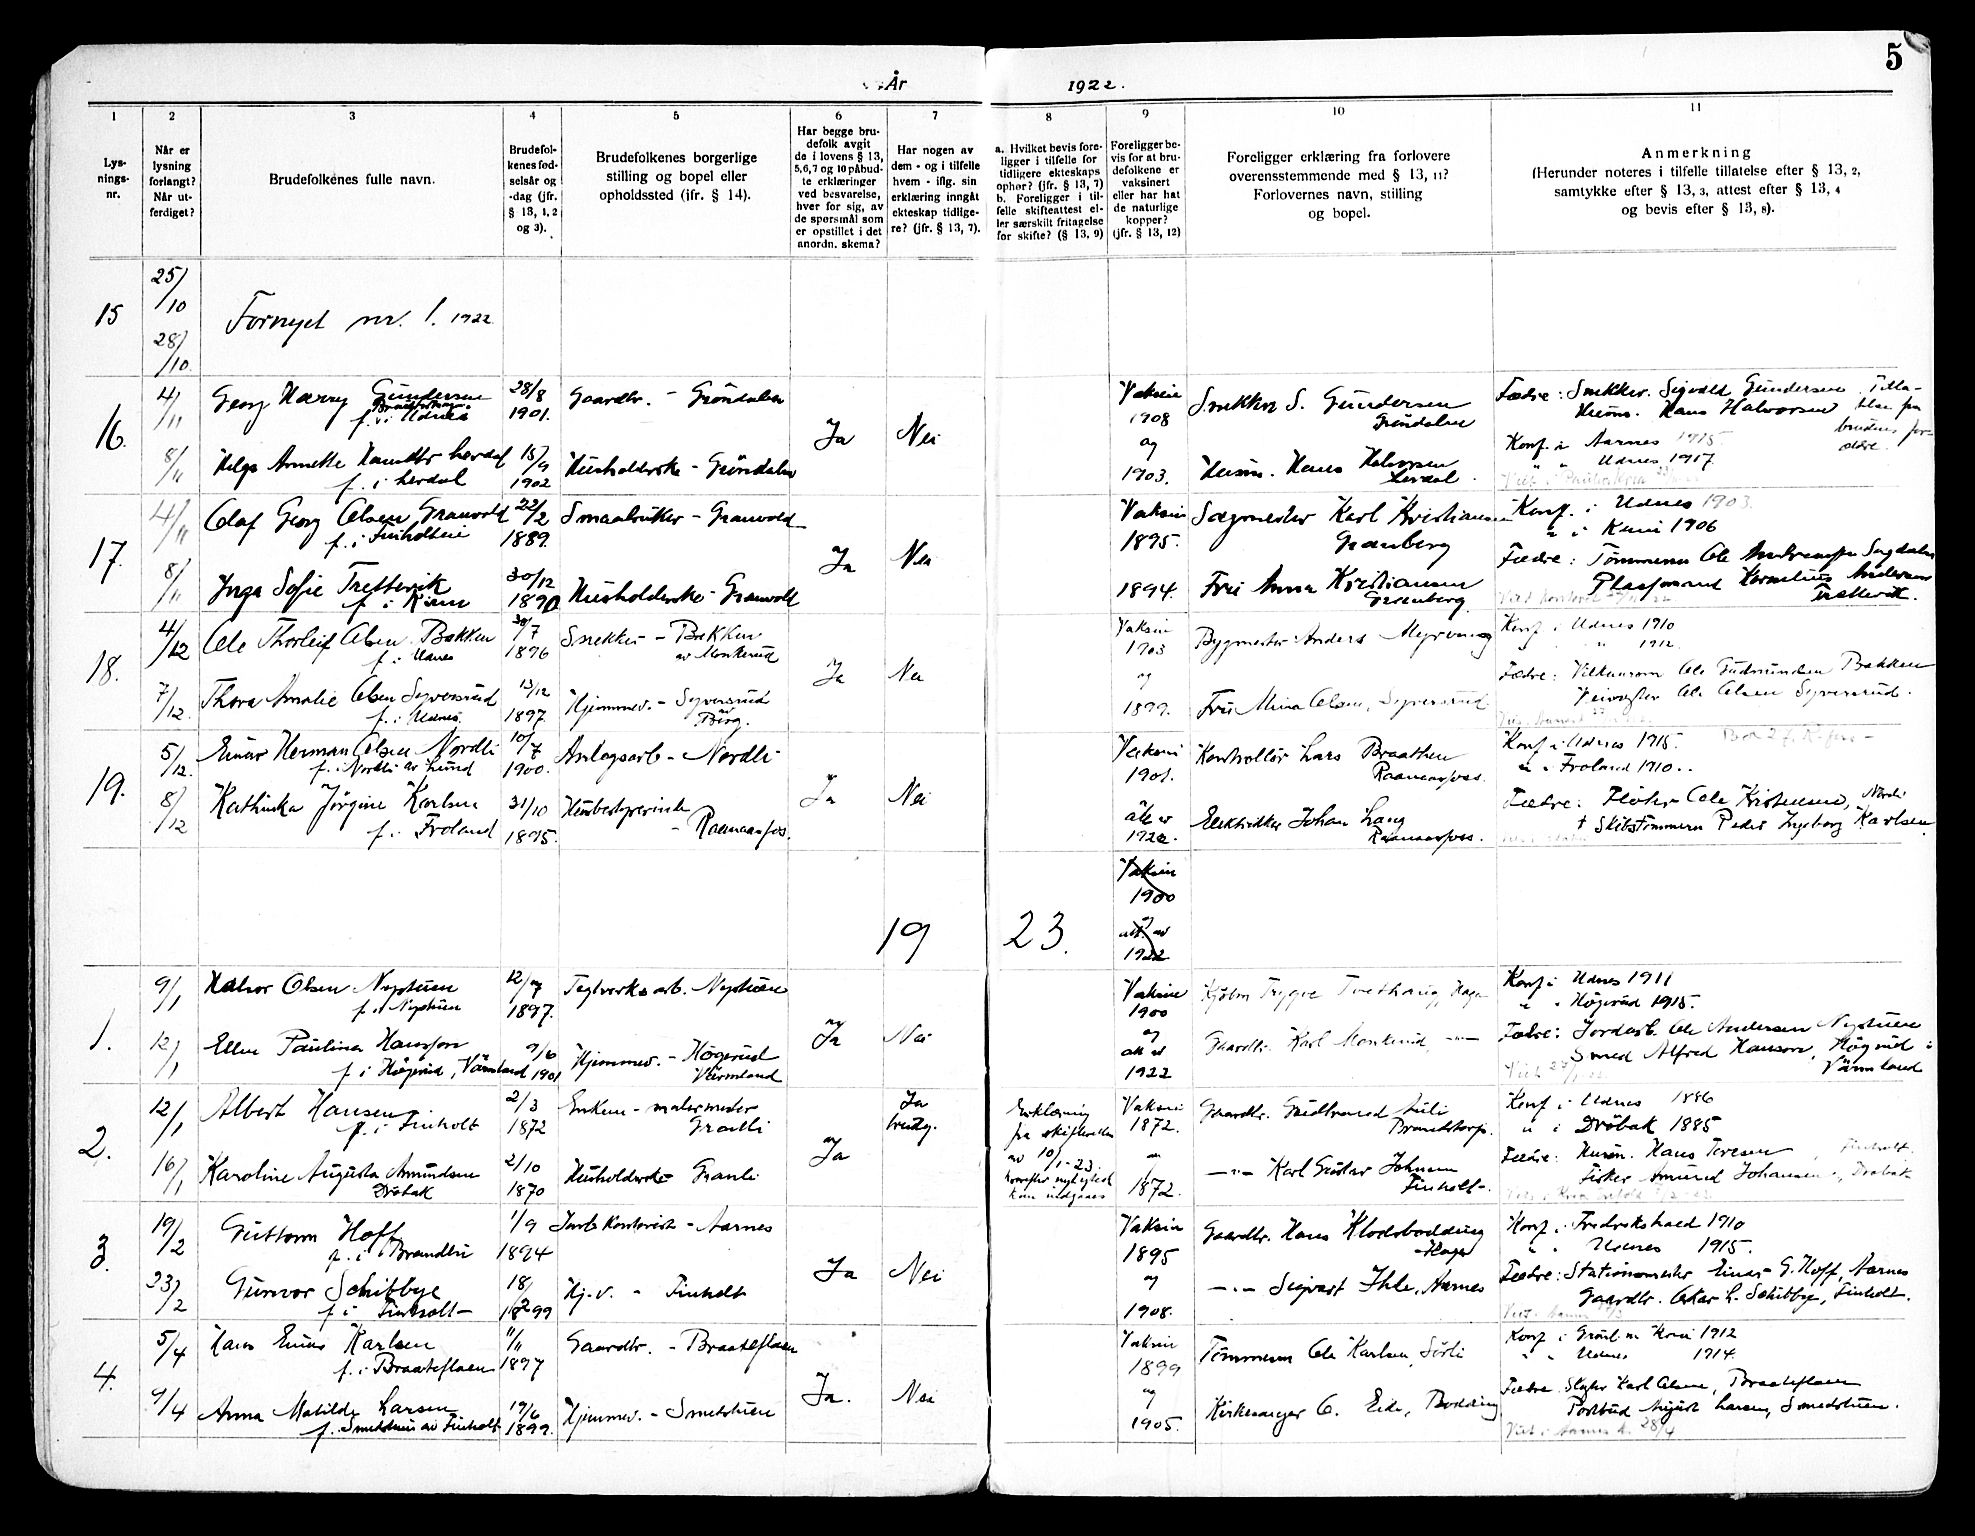 5
År 1922.
1
2
3
4
5
6
7
8
9
10
11
Lys-
nings-
nr.
Når er
lysning
forlangt?
Når ut-
ferdiget?
Brudefolkenes fulle navn.
Brudefol-
kenes fød-
selsår og
-dag (jfr.
§ 13, 1, 2
og 3).
Brudefolkenes borgerlige
stilling og bopel eller
opholdssted (jfr. § 14).
Har begge bru-
defolk avgit
de i lovens § 13,
5,6,7 og 10 påbud-
te erklæringer
ved besvarelse,
hver for sig, av
de spørsmål som
er opstillet i det
anordn. skema?
Har nogen av
dem - og i tilfelle
hvem - iflg. sin
erklæring inngåt
ekteskap tidlige-
re? (jfr. § 13, 7).
a. Hvilket bevis fore-
ligger i tilfelle for
tidligere ekteskaps
ophør? (jfr. § 13, 7)
b. Foreligger i til-
felle skifteattest el-
ler særskilt fritagelse
for skifte? (§ 13, 9)
Foreligger be-
vis for at bru-
defolkene er
vaksinert
eller har hat
de naturlige
kopper?
(jfr. § 13, 12)
Foreligger erklæring fra forlovere
overensstemmende med § 13, 11?
Forlovernes navn, stilling
og bopel.
Anmerkning
(Herunder noteres i tilfelle tillatelse efter § 13, 2,
samtykke efter § 13, 3, attest efter § 13, 4
og bevis efter § 13, 8).
15
25/10
28/10
Fornyet nr. 1. 1922
16.
4/11
Georg Harry Gundersen
f. i Udnes
28/8
1901.
Gaardbr. - Grøndalen
8/11
Helga Annette Hansdtr Lerdal
f. i Lerdal
15/9
1902
Husholderske - Grøndalen
Ja
Nei
Vaksin
1908
og
1903.
Snekker S. Gundersen
Grøndalen
Husm. Hans Halvorsen
Lerdal.
Fædre: Snekker. Sigvald Gundersen
Husm. Hans Halvorsen
Tilla-
telse fra
brudens for-
ældre.
Konf. i Aarnes 1915
" " Udnes 1917.
17.
4/11
Olaf Georg Olsen Granvold
f. i Finholteie
22/2
1889.
Smaabruker - Granvold
8/11
Inga Sofie Tretterik
f. i
30/12
1890
Husholderske - Granvold
Ja
Nei
Vaksin
1895.
1894.
Sagmester Karl Kristiansen
Granberg
Fru Anna Kristiansen
Granberg.
Konf. i Udnes 1903.
" i 1906
Fædre: Tømmerm Ole
Plassmand Kornelius Andersen
18.
4/12
Ole Thorleif Olsen Bakken
f. i Udnes
30/7
1896
Snekker - Bakken
av Monkerud
7/12.
Thora Amalie Olsen Syversrud
f. i Udnes.
13/12
1897.
Hjemmev. - Syversrud
av Berg.
Ja
Nei
Vaksin
1903
og
1899.
Bygmester Anders Myrvang
Fru Mina Olsen, Syversrud
Konf. i Udnes 1910
" " 1912.
Fædre: Ole Gudmundsen Bakken
Veivogter Ole Olsen Syversrud.
19.
5/12.
Einar Herman Olsen Nordli
f. i Nordli av Lund
10/7
1900.
Anlægsarb - Nordli
8/12
Kathinka Jørgine Karlsen
f. i Froland
31/10
1895.
Husbestyrerinde
- Raanaasfoss.
Ja
Nei
Vaksin
1901.
1922.
Kontrollør Lars Braathen
Raanaasfoss.
Elektrikker Johan Lang
Raanaasfoss.
Konf. i Udnes 1915.
" " Froland 1910.
Fædre: Fløter Ole Kristensen, Nordli
† Skibstømmerm Peder Ingeborg Karlsen
19
23.
Vaksin
1900
og
att. av
1922
1.
9/1
Halvor Olsen Nystuen
f. i Nystuen
12/7
1897.
Teglverksarb. Nystuen
12/1
Ellen Paulina Hansson
f. i Högerud, Värmland
7/6
1901
Hjemmev. - Högerud
Värmland
Ja
Nei
Vaksin
1900
og
att. av
1922
Trygve Tvethaug, Haga
Gaardbr. Karl Monkerud -"-
Konf. i Udnes 1911
" " Högerud 1915.
Fædre: Jordarb. Ole Andersen Nystuen
Smed Alfred Hansson, Högerud i
Värmland
2.
12/1
Albert Hansen
f. i Finholt
2/3
1872
Enkem - malermester
Granli
16/1
Karoline Augusta Amundsen
Drøbak
2/10
1870
Husholderske Granli
Ja
Ja
brudg.
Erklæring
fra skifteretten
av 10/1-23
hvorefter nyt egteskab
kan indgaaes
Vaksin
1872.
1872.
Gaardbr. Gudbrand Juli
Brandstorp.
-"- Karl Gustav Johnsen
Finholt.
Konf i Udnes 1886
" i Drøbak 1885
Fædre: Husm. Hans Toresen, Finholt.
Fisker Amund Johansen, Drøbak
3.
19/2
Guttorm Hoff
f. i Brandbu
1/9
1894
Jernb. Kontorist - Aarnes
23/2
Gunvor Schibbye
f. i Finholt
18/2
1899
Hj.v. - Finholt
Ja
Nei
Vaksin
1895
og
1908.
Gaardbr. Hans Klodsbodding
Haga
-"- Sigvart Ihle, Aarnes
Konf. i Fredrikshald 1910
" " Udenes 1915.
Fædre: Stationsmester Einar G. Hoff, Aarnes
Gaardbr. Oskar L. Schibbye, Finholt.
4.
5/4
Hans Einar Karlsen
f. i Braateflaen
11/11
1897
Gaardbr. - Braateflaen
9/4
Anna Matilde Larsen
f. Smedstuen av Finholt
19/6
1899.
Hjemmev. - Smedstuen
Ja.
Nei
Vaksin
1899
og
1905.
Tømmerm Ole Karlsen, Sørli
Kirkesanger O. Eide, Bodding
Konf i 1912
" " Udnes 1914.
Fædre Karl Olsen, Braateflaen
Postbud August Larsen, Smedstuen.
Viet i Aarnes k. 28/4